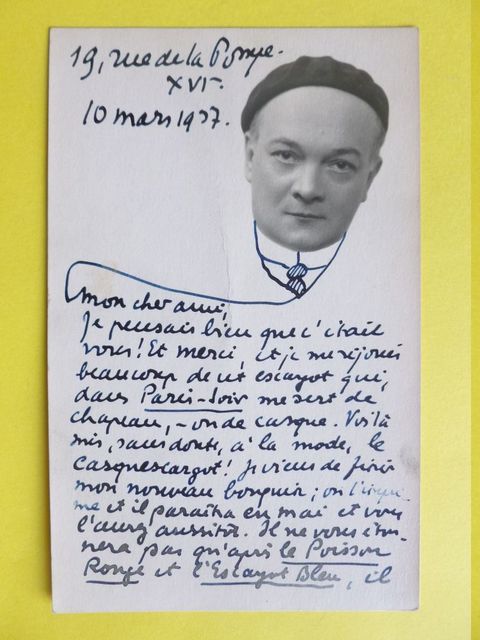 19, rue de la Pompe.
XVIe
10 mars 1937.
Mon cher ami,
Je pensais bien que c'était
vous! Et merci, et je me réjouis
beaucoup de cet escargot qui,
dans Paris-Soir me sert de
chapeau, – ou de casque. Voilà
mis, sans doute, à la mode, le
casquescargot! Je viens de finir
mon nouveau bouquin; on l'impri-
me et il paraîtra en mai et vous
l'aurez aussitôt. Il ne vous éton-
nera pas qu'après le Poisson
Rouge et l'Escargot Bleu, il